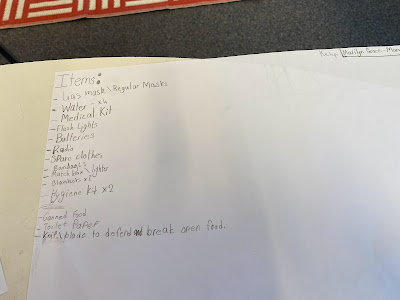 Items:
- Gas mask \ Regular Masks
- Water - x6
- Medical Kit
- Flash lights
- Batteries
- Radio
- Spare clothes
- Bandages
- Match box \ lighter
- Blankets x2
- Hygiene kit x2
- Canned food
- Toilet Paper
- Knife \ blade to defend and break open food.